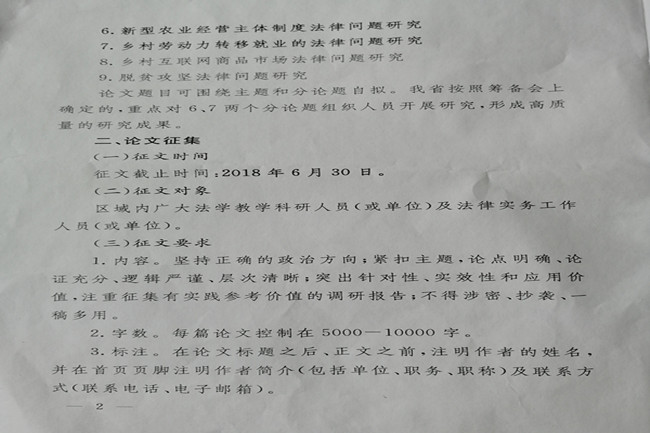 6. 新型农业经营主体制度法律问题研究
7. 乡村劳动力转移就业的法律问题研究
8. 乡村互联网商品市场法律问题研究
9. 脱贫攻坚法律问题研究
论文题目可围绕主题和分论题自拟。我省按照筹备会上
确定的,重点对 6、7 两个分论题组织人员开展研究,形成高质
量的研究成果。
二、论文征集
(一)征文时间
征文截止时间:2018 年 6 月 30 日。
(二)征文对象
区域内广大法学教学科研人员(或单位)及法律实务工作
人员(或单位)。
(三)征文要求
1. 内容。坚持正确的政治方向;紧扣主题,论点明确、论
证充分、逻辑严谨、层次清晰;突出针对性、实效性和应用价
值,注重征集有实践参考价值的调研报告;不得涉密、抄袭、一
稿多用。
2. 字数。每篇论文控制在 5000—10000 字。
3. 标注。在论文标题之后、正文之前,注明作者的姓名,
并在首页页脚注明作者简介(包括单位、职务、职称)及联系方
式(联系电话、电子邮箱)。
— 2 —